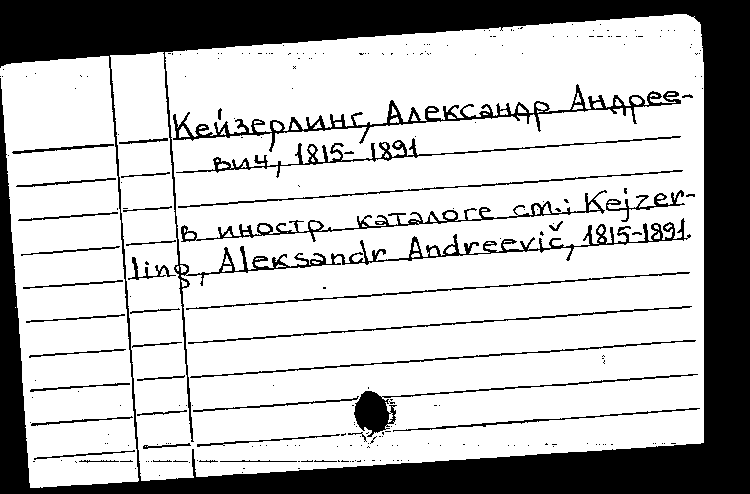 Кейзерлинг, Александр Андрее-
вич, 1815-1891
в иностр. каталоге см.: Kejzer-
ling, Aleksandr Andreevič, 1815-1891.